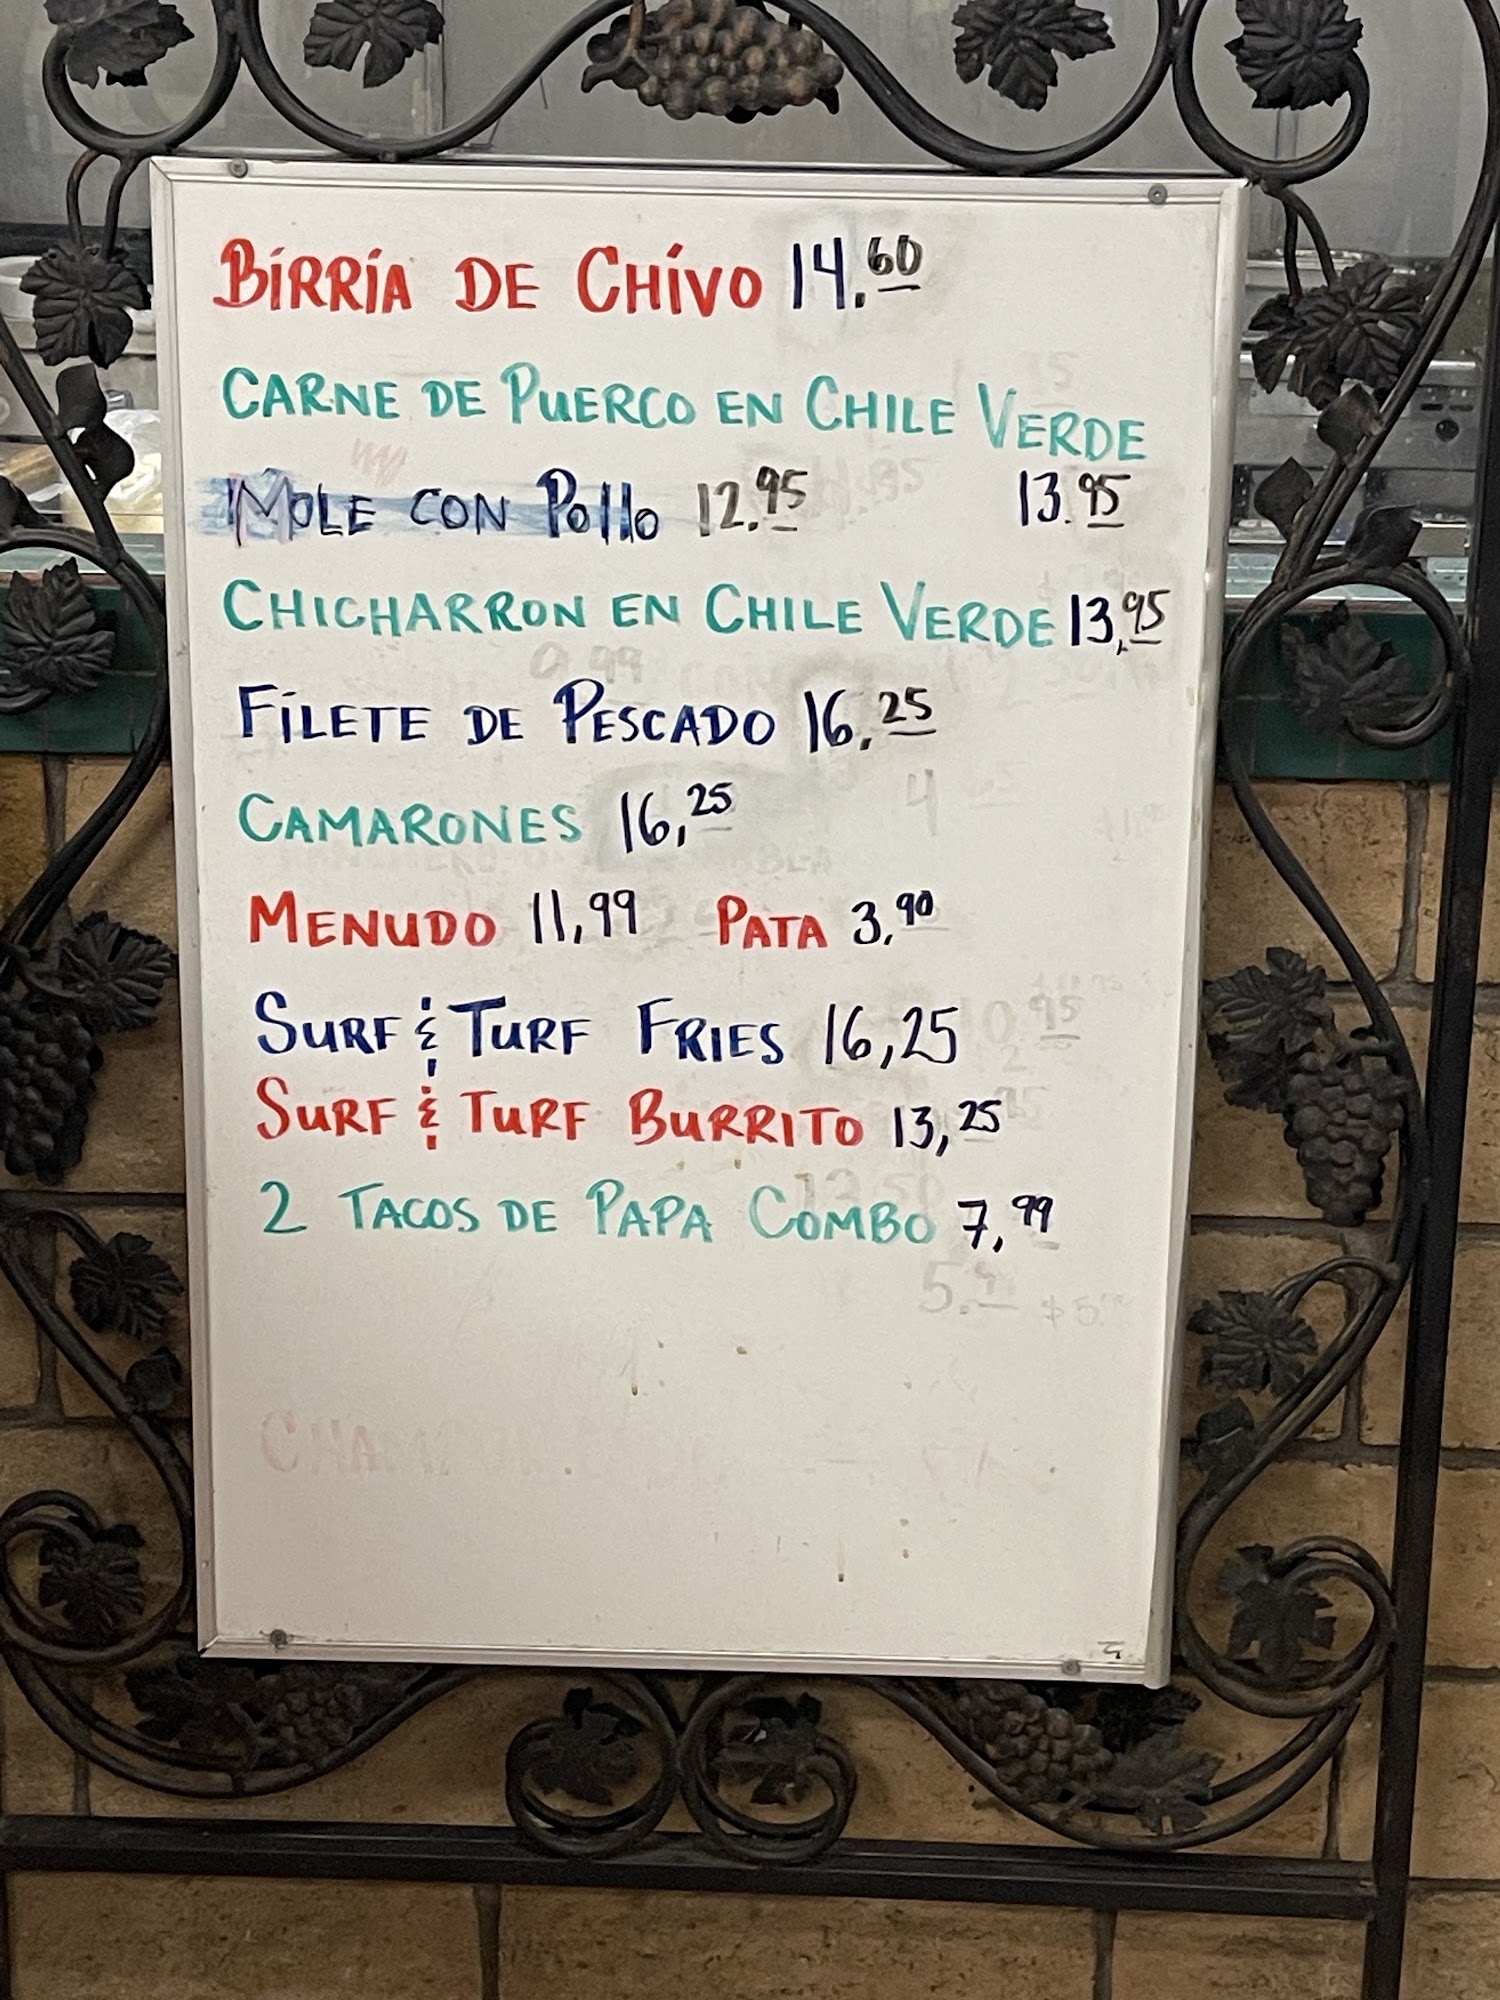 BIRRIA DE CHIVO 14.60
CARNE DE PUERCO EN CHILE VERDE
13.95
MOLE CON Pollo 12.95
CHICHARRON EN CHILE VERDE 13,95
FILETE DE PESCADO 16.25
CAMARONES 16,25
MENUDO 11,99 PATA 3,90
SURF & TURF FRIES 16,25
SURF & TURF BURRITO 13,25
2 TACOS DE PAPA COMBO 7,99